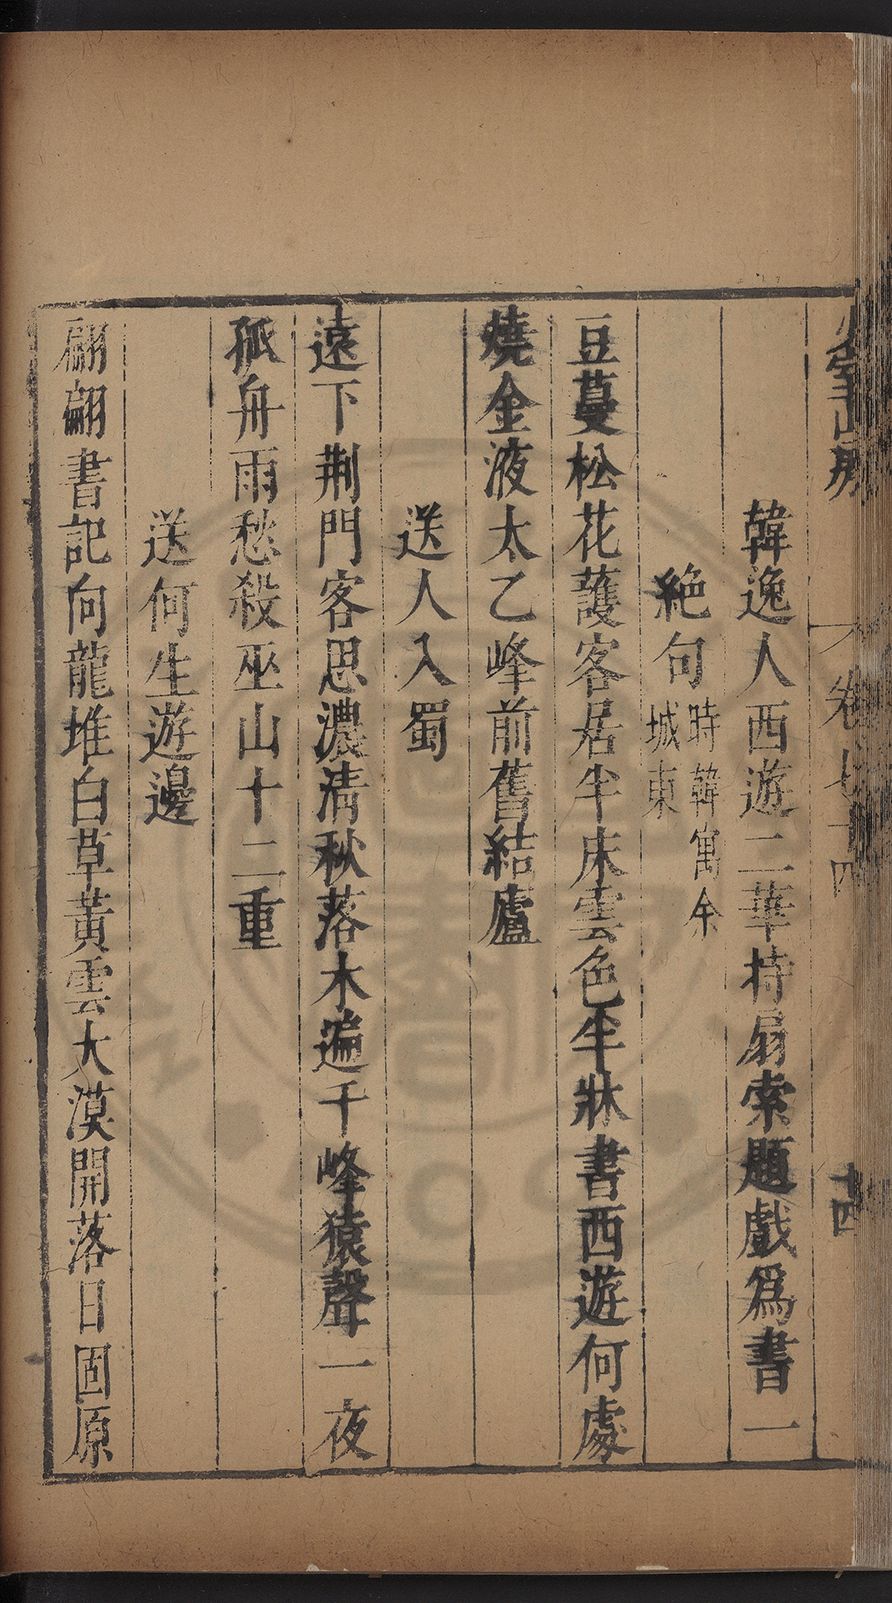 少室山房　卷七十四　十四
韓逸人西遊二華持扇索題戲爲書一
絶句時韓寓余
城東
豆蔓松花護客居半床雲色半牀書西遊何處
燒金液太乙峰前舊結廬
送人入蜀
遠下荆門客思濃清秋落木遍千峰猿聲一夜
孤舟雨愁殺巫山十二重
送何生遊邊
翩翩書記向龍堆白草黃雲大漠開落日固原